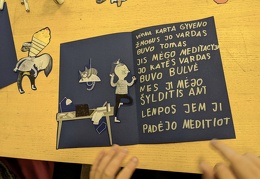 VIENĄ KARTĄ GYVENO
ŽMOGUS JO VARDAS
BUVO TOMAS
JIS MĖGO MEDITACIJĄ
JO KATĖS VARDAS
BUVO BULVĖ
NES JI MĖGO
ŠYLDITIS ANT
LENPOS JEM JI
PADĖJO MEDITIOT